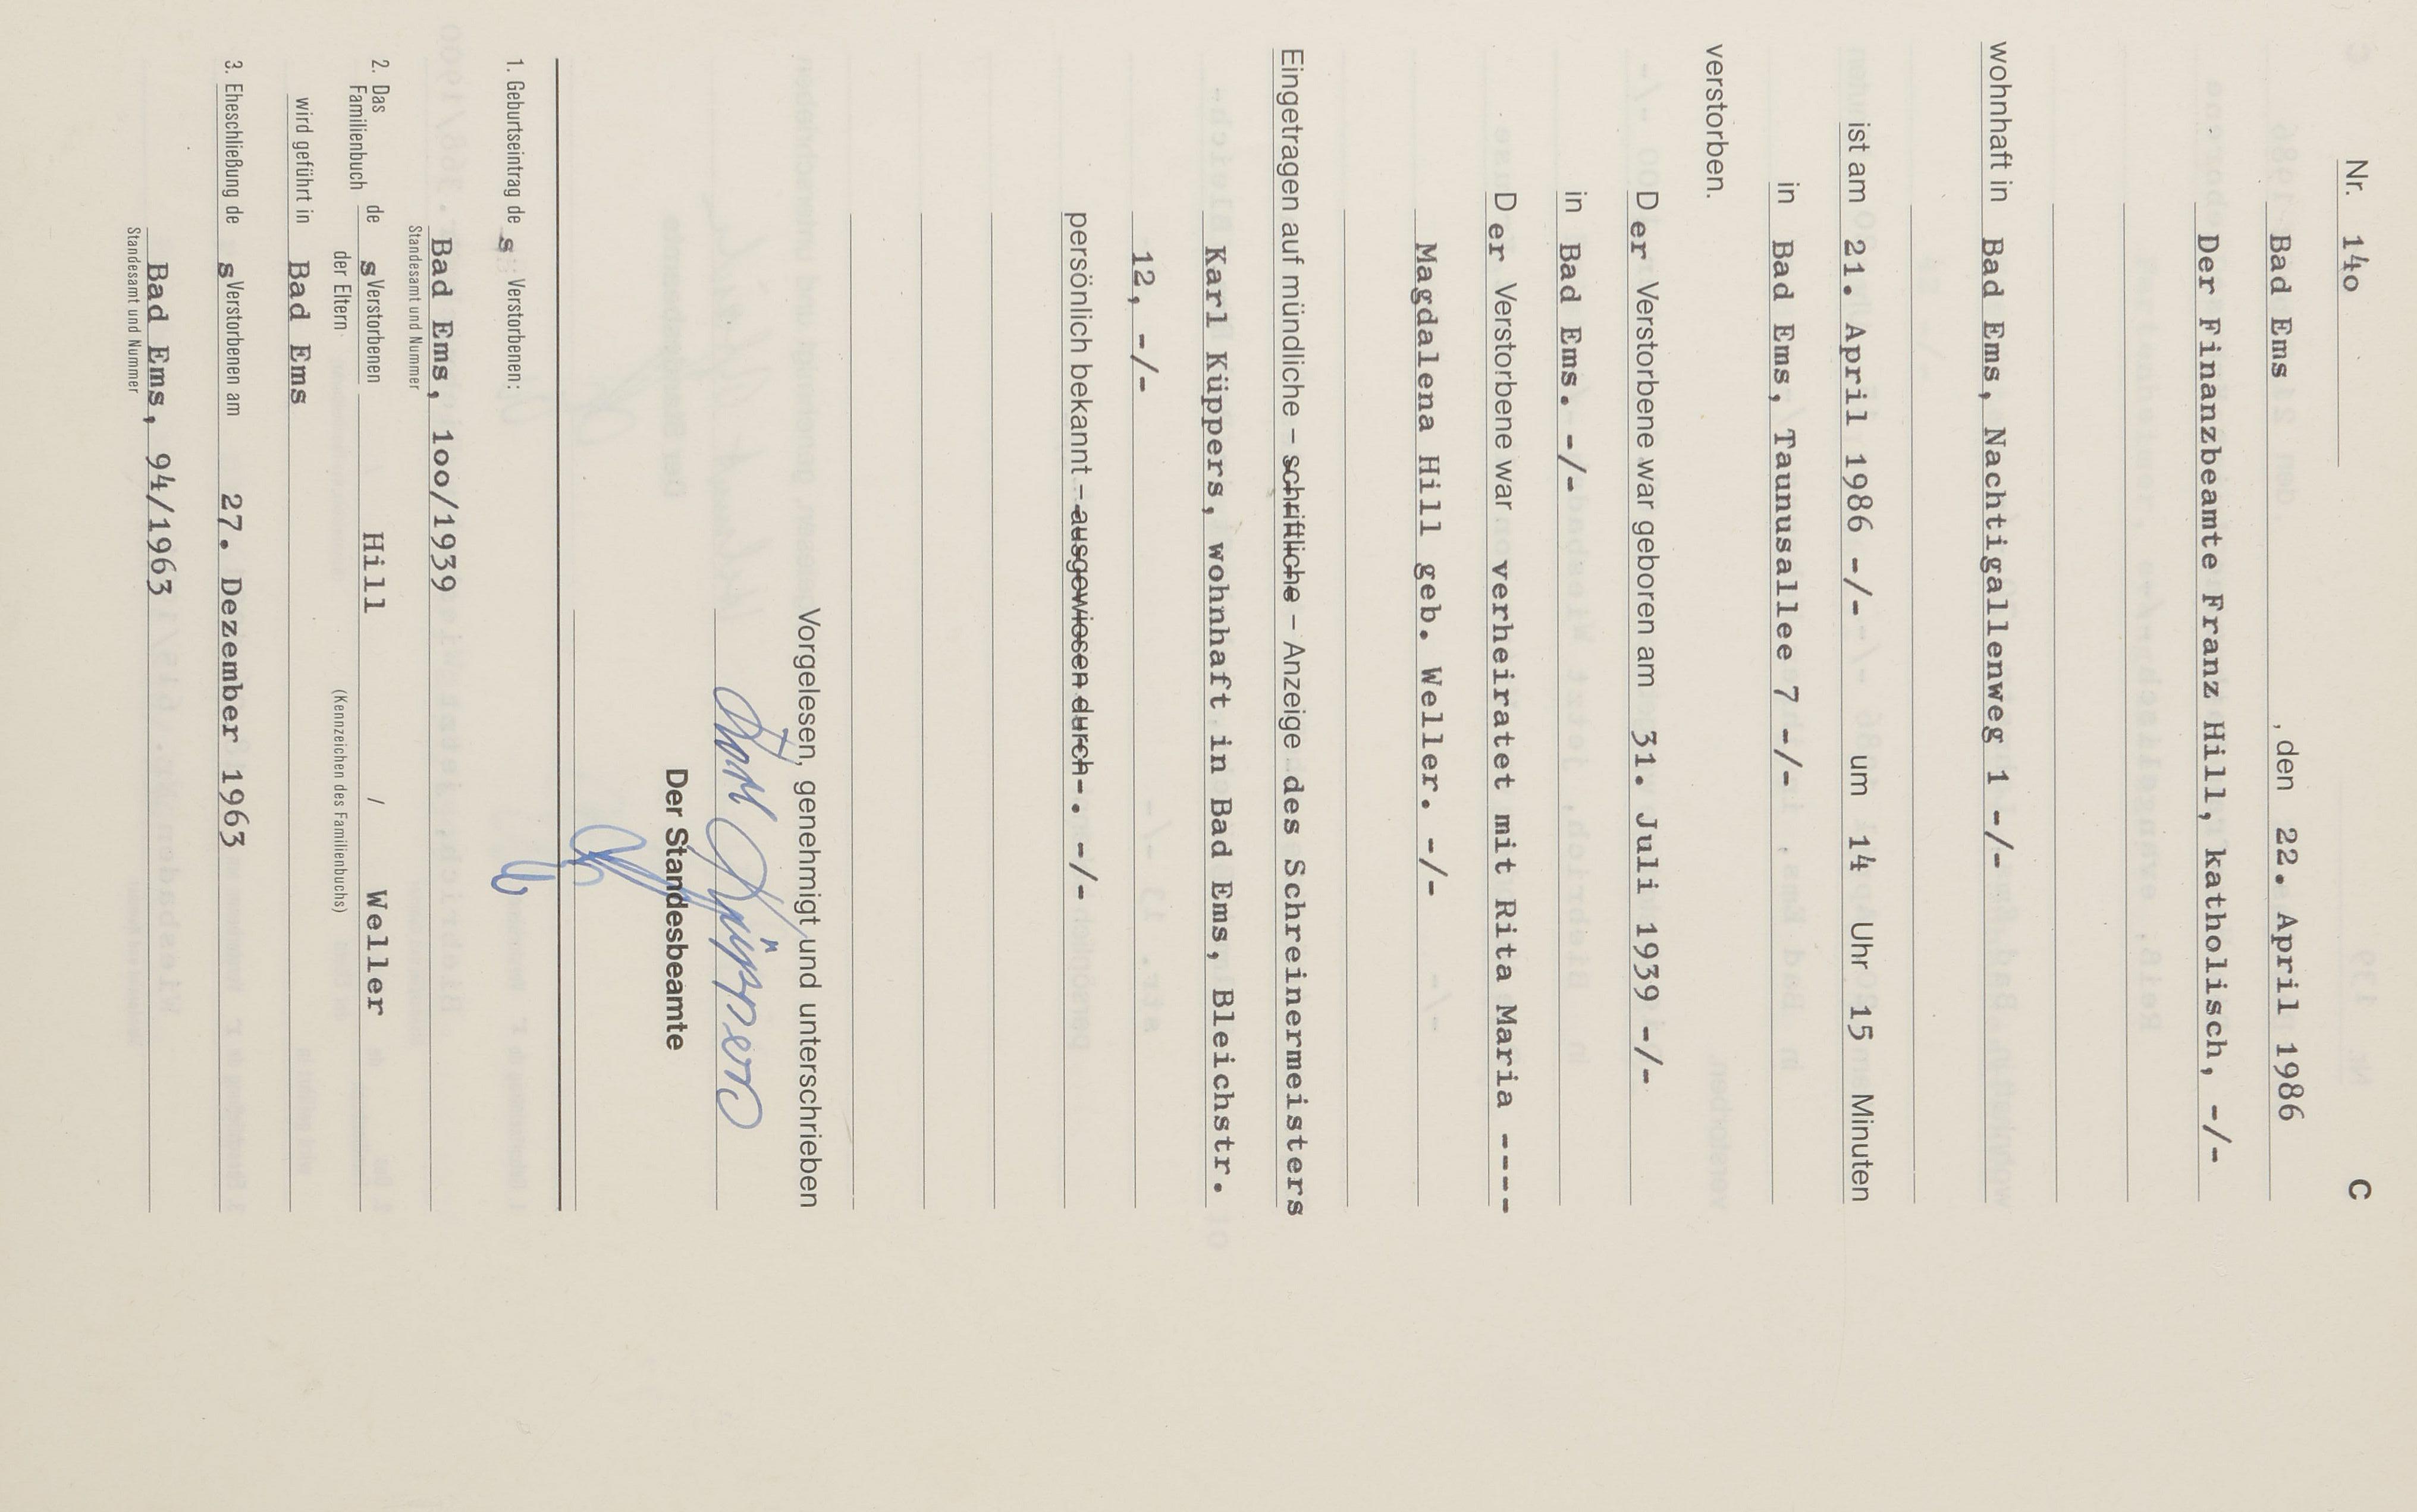 C
Nr. 14o
Bad Ems , den 22. April 1986
Der Finanzbeamte Franz Hill, katholisch, -/-
wohnhaft in Bad Ems, Nachtigallenweg 1 -/-
ist am 21. April 1986 -/- um 14 Uhr 15 Minuten
in Bad Ems, Taunusallee 7 -/-
verstorben.
Der Verstorbene war geboren am 31. Juli 1939 -/-
in Bad Ems. -/-
Der Verstorbene war verheiratet mit Rita Maria ----
Magdalena Hill geb. Weller. -/-
Eingetragen auf mündliche – schriftliche – Anzeige des Schreinermeisters
Karl Küppers, wohnhaft in Bad Ems, Bleichstr.
12, -/-
persönlich bekannt – ausgewiesen durch-. -/-
Vorgelesen, genehmigt und unterschrieben
Karl Küppers
Der Standesbeamte
1. Geburtseintrag des Verstorbenen:
Bad Ems, 1oo/1939
Standesamt und Nummer
2. Das Familienbuch des Verstorbenen Hill / Weller
der Eltern (Kennzeichen des Familienbuchs)
wird geführt in Bad Ems
3. Eheschließung des Verstorbenen am 27. Dezember 1963
Bad Ems, 94/1963
Standesamt und Nummer